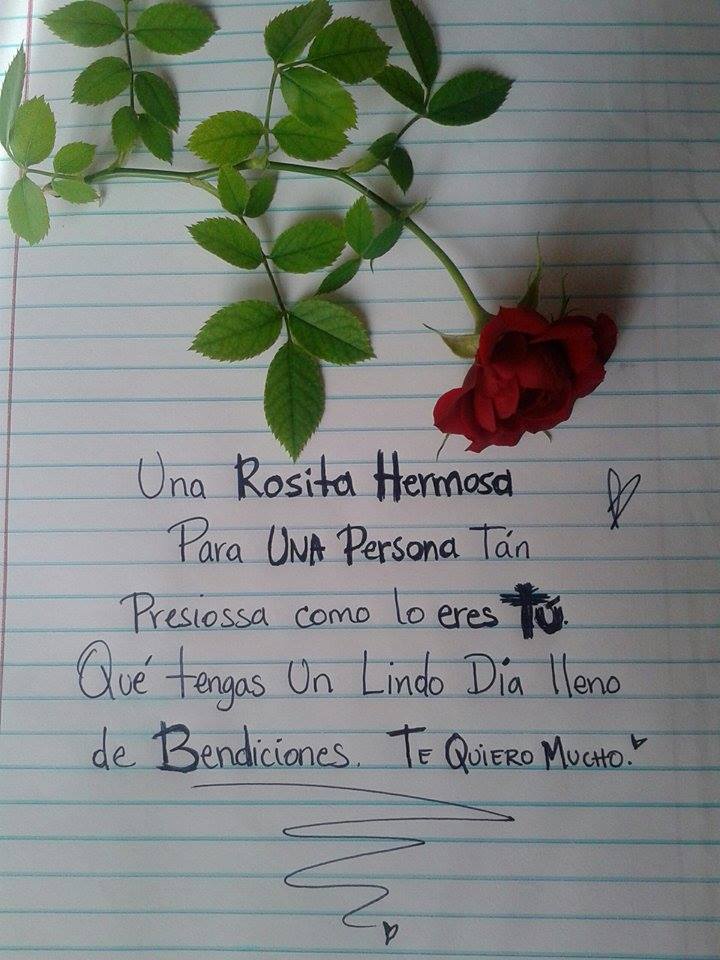 Una Rosita Hermosa
Para UNA Persona Tán
Presiossa como lo eres Tú.
Qué tengas Un Lindo Día lleno
de Bendiciones. TE QUIERO MUCHO.